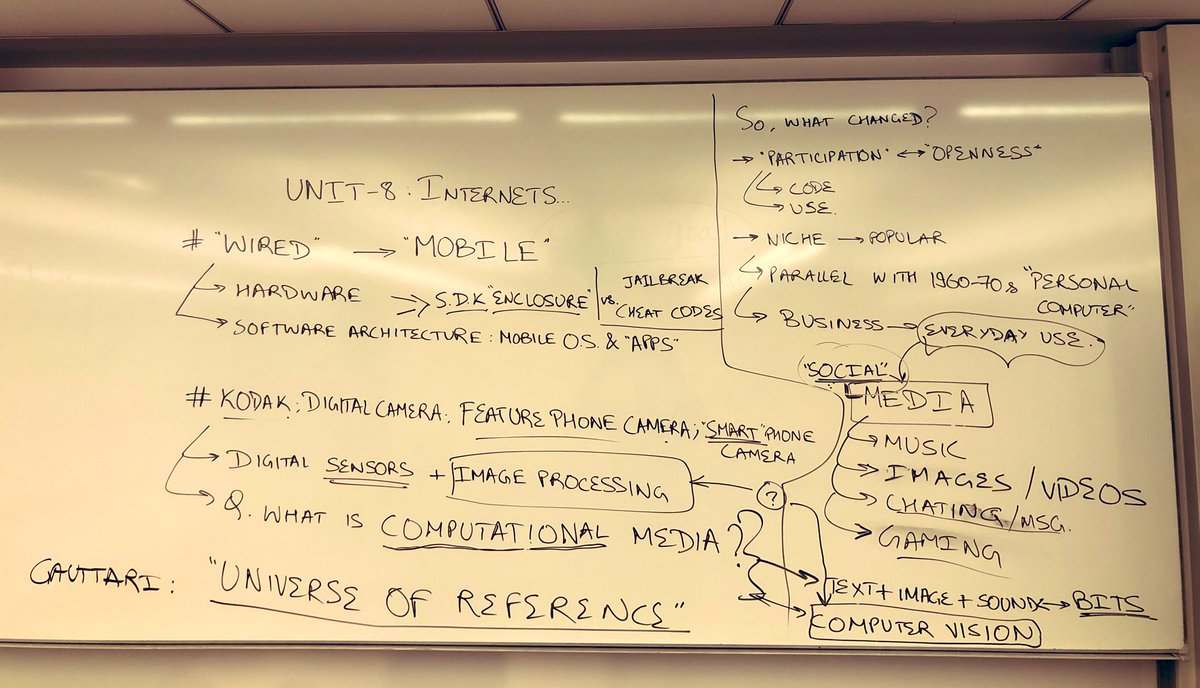 UNIT-8: INTERNETS...
# "WIRED" → "MOBILE"
↳ HARDWARE ⇒ S.D.K "ENCLOSURE" | JAILBREAK
vs. CHEAT CODES
↳ SOFTWARE ARCHITECTURE: MOBILE O.S. & "APPS"
# KODAK; DIGITAL CAMERA; FEATURE PHONE CAMERA; "SMART" PHONE
CAMERA
↳ DIGITAL SENSORS + IMAGE PROCESSING
↳ Q. WHAT IS COMPUTATIONAL MEDIA??
GAUTTARI: "UNIVERSE OF REFERENCE"
SO, WHAT CHANGED?
→ "PARTICIPATION" ↔ "OPENNESS"
↳ CODE
↳ USE.
→ NICHE → POPULAR
↳ PARALLEL WITH 1960-70s "PERSONAL
COMPUTER"
↳ BUSINESS → EVERYDAY USE.
"SOCIAL"
MEDIA
→ MUSIC
→ IMAGES / VIDEOS
→ CHATING/MSG.
→ GAMING
?
TEXT + IMAGE + SOUND ↔ BITS
COMPUTER VISION